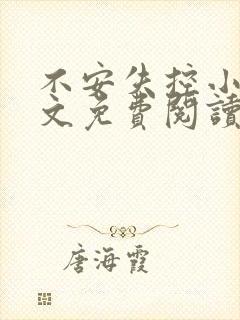 不安失控小
文免費閱讀
唐海霞